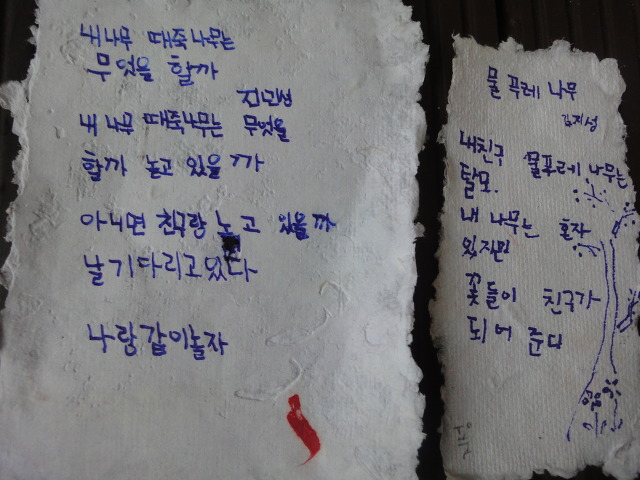 내 나무 때죽 나무는
무엇을 할까
전민성
내 나무 때죽나무는 무엇을
할까 놀고 있을까
아니면 친구랑 놀고 있을까
날 기다리고 있다
나랑 같이 놀자
물푸레 나무
김지성
내친구 물푸레 나무는
탈모.
내 나무는 혼자
있지만
꽃들이 친구가
되어 준다